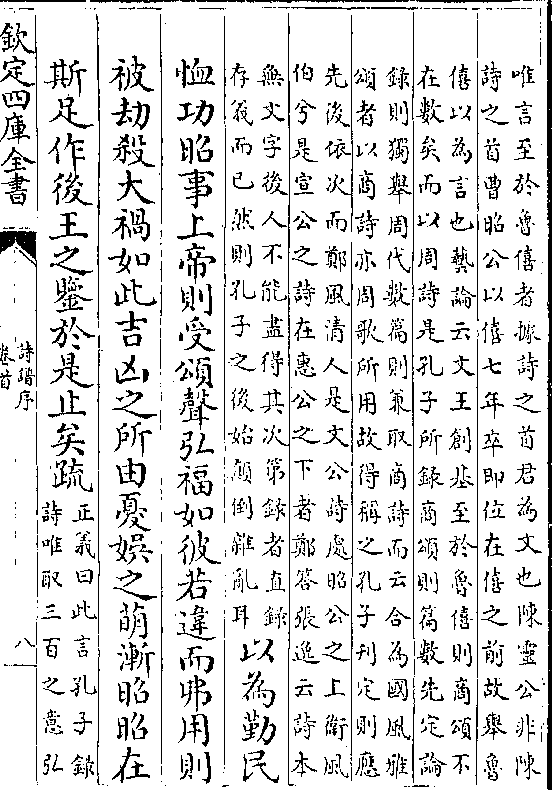 唯言至於魯僖者據詩之首君為文也陳靈公非陳
詩之首曹昭公以僖七年卒即位在僖之前故舉魯
僖以為言也藝論云文王創基至於魯僖則商頌不
在數矣而以周詩是孔子所錄商頌則篇數先定論
錄則獨舉周代數篇則兼取商詩而云合為國風雅
頌者以商詩亦周歌所用故得稱之孔子刊定則應
先後依次而鄭風清人是文公詩處昭公之上衛風
伯兮是宣公之詩在惠公之下者鄭答張逸云詩本
無文字後人不能盡得其次第錄者直錄
存義而已然則孔子之後始顛倒雜亂耳
以為勤民
恤功昭事上帝則受頌聲弘福如彼若違而弗用則
被劫殺大禍如此吉凶之所由憂娛之萌漸昭昭在
斯足作後王之鑒於是止矣疏
正義曰此言孔子錄
詩唯取三百之意弘
欽定四庫全書
詩譜序
卷首
八